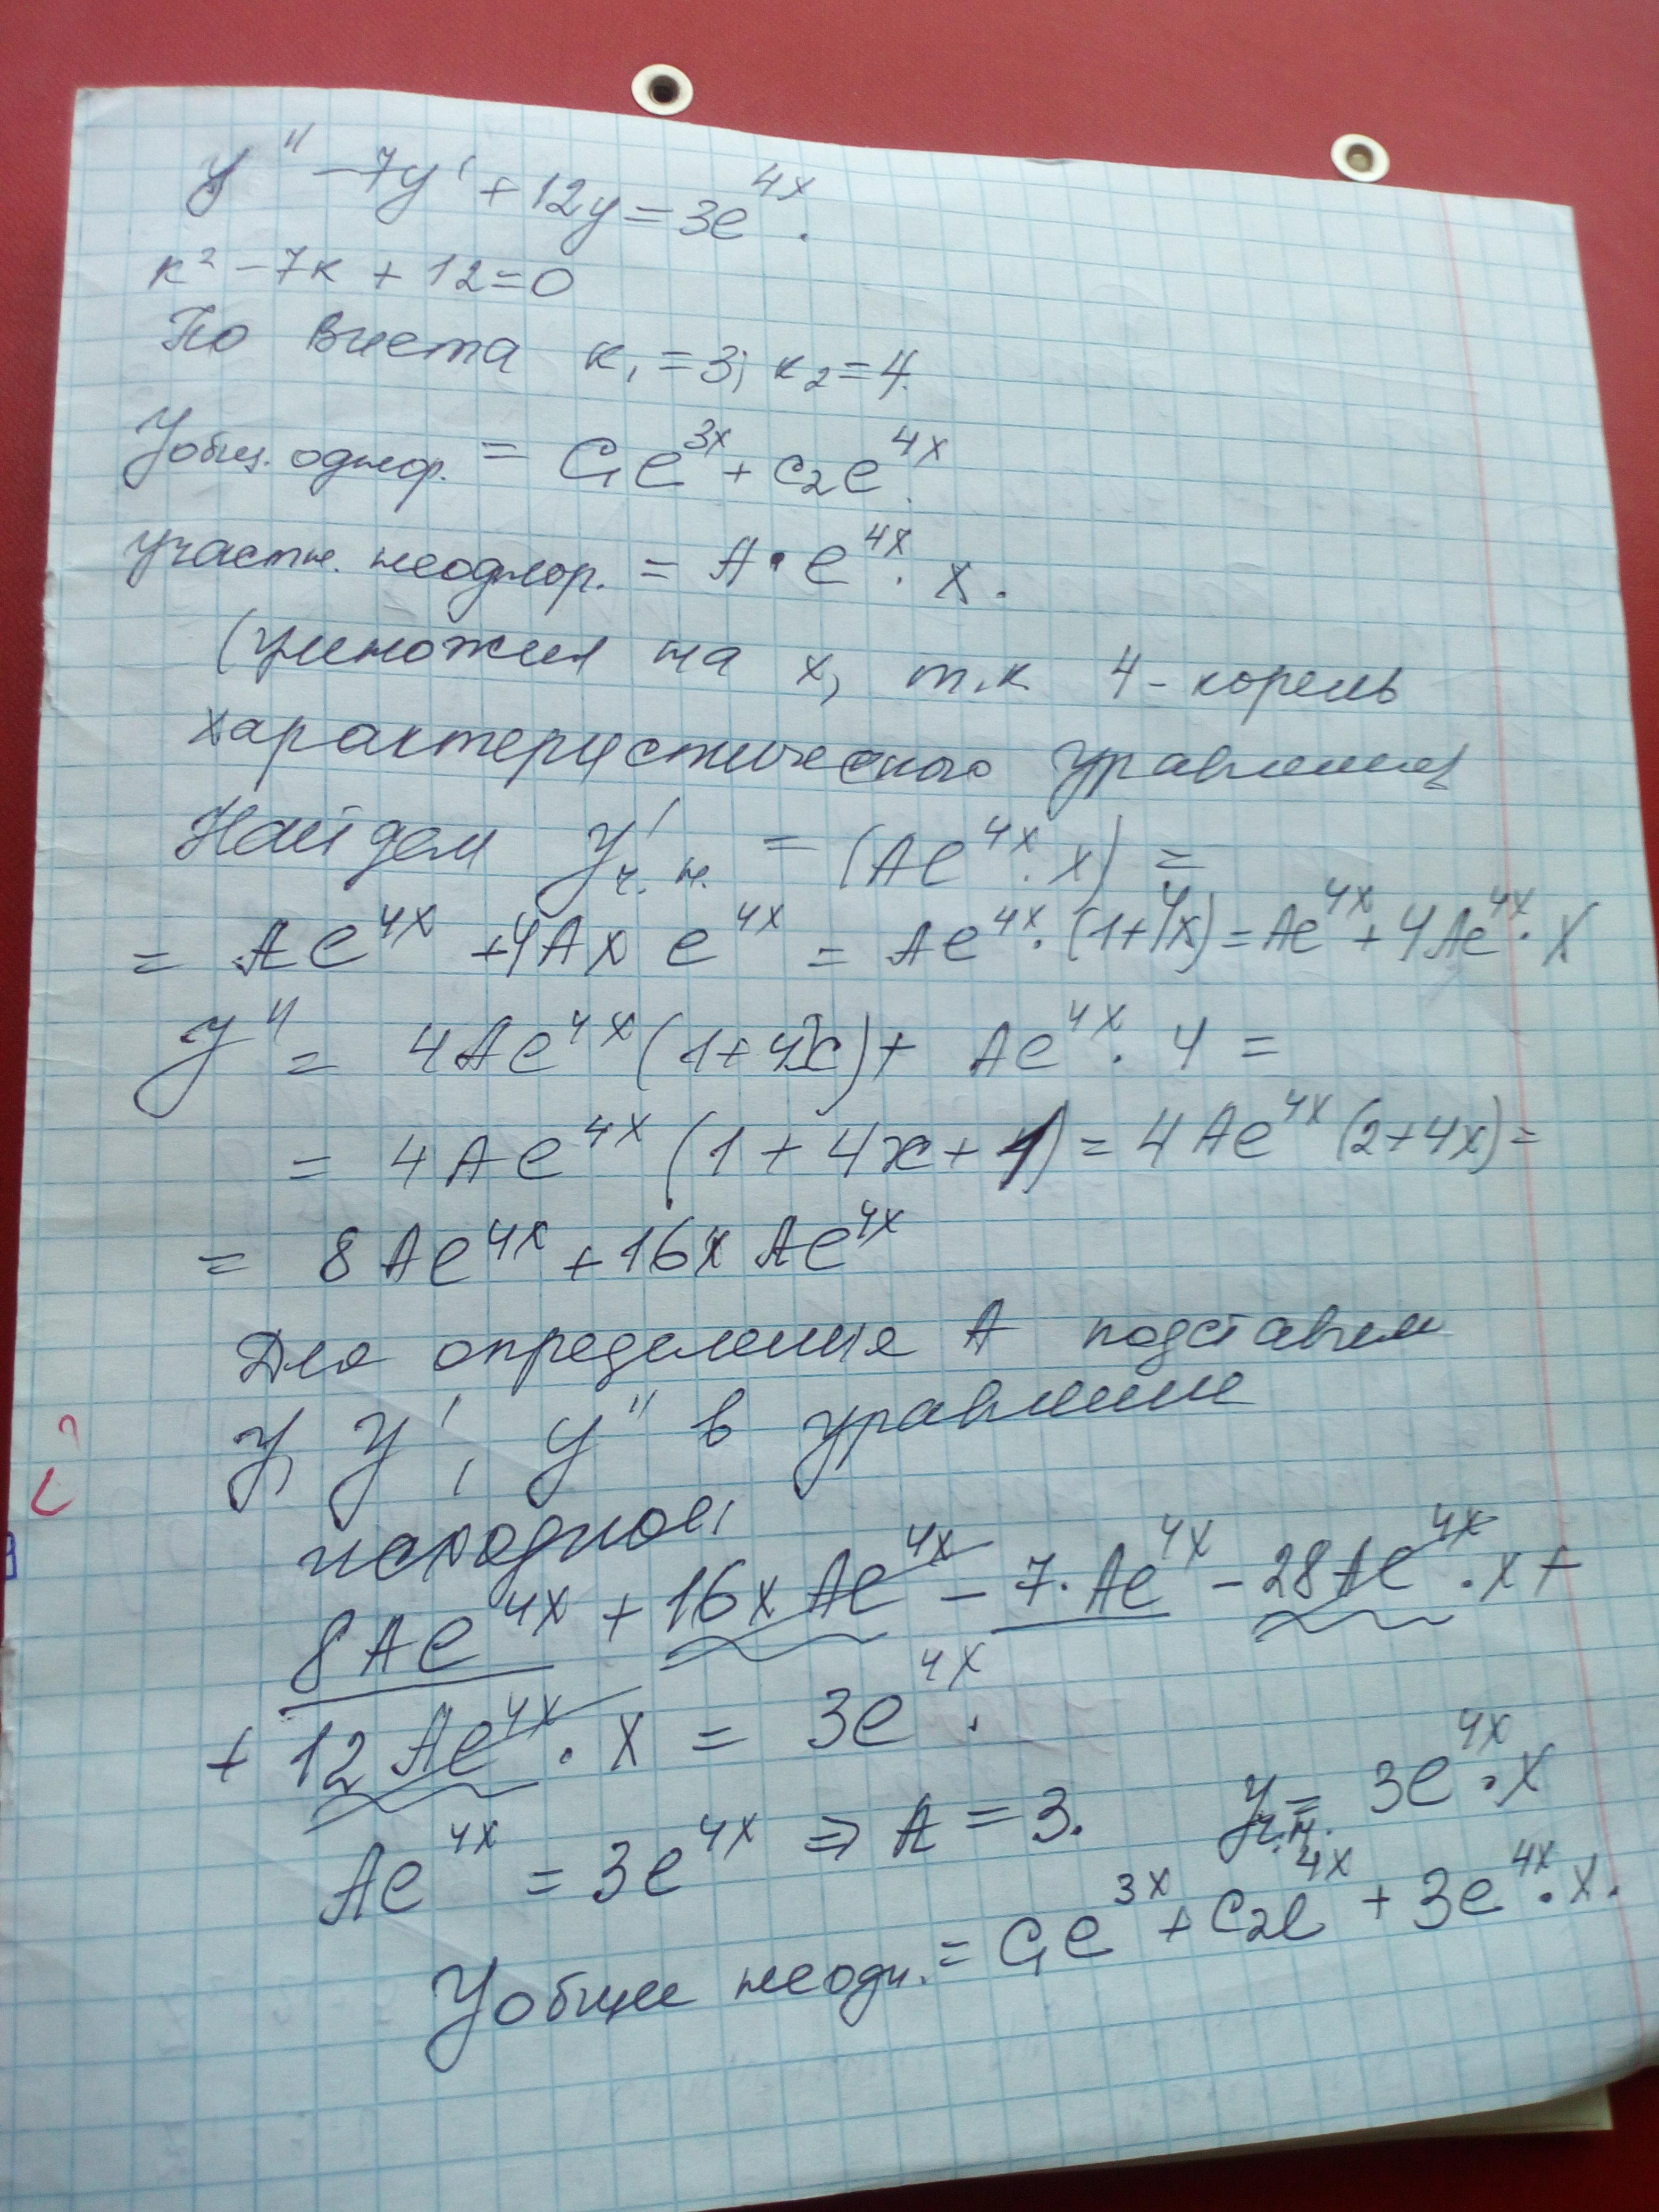 y'' - 7y' + 12y = 3e^{4x}.
к² - 7к + 12 = 0
По Виета к₁ = 3; к₂ = 4.
Yобщ. однор. = C₁e^{3x} + C₂e^{4x}.
yчастн. неоднор. = A · e^{4x} · x.
(умножил на x, т.к 4 - корень
характеристического уравнения
Найдем y'ч.н. = (Ae^{4x} · x) =
= Ae^{4x} + 4Ax e^{4x} = Ae^{4x} · (1+4x) = Ae^{4x} + 4Ae^{4x} · x
y'' = 4Ae^{4x}(1+4x) + Ae^{4x} · 4 =
= 4Ae^{4x}(1+4x+1) = 4Ae^{4x}(2+4x) =
= 8Ae^{4x} + 16xAe^{4x}
Для определения A подставим
y, y', y'' в уравнение
исходное:
8Ae^{4x} + 16xAe^{4x} - 7·Ae^{4x} - 28Ae^{4x} · x +
+ 12Ae^{4x} · x = 3e^{4x}.
Ae^{4x} = 3e^{4x} ⇒ A = 3. yч.н. = 3e^{4x} · x
Yобщее неодн. = C₁e^{3x} + C₂e^{4x} + 3e^{4x} · x.